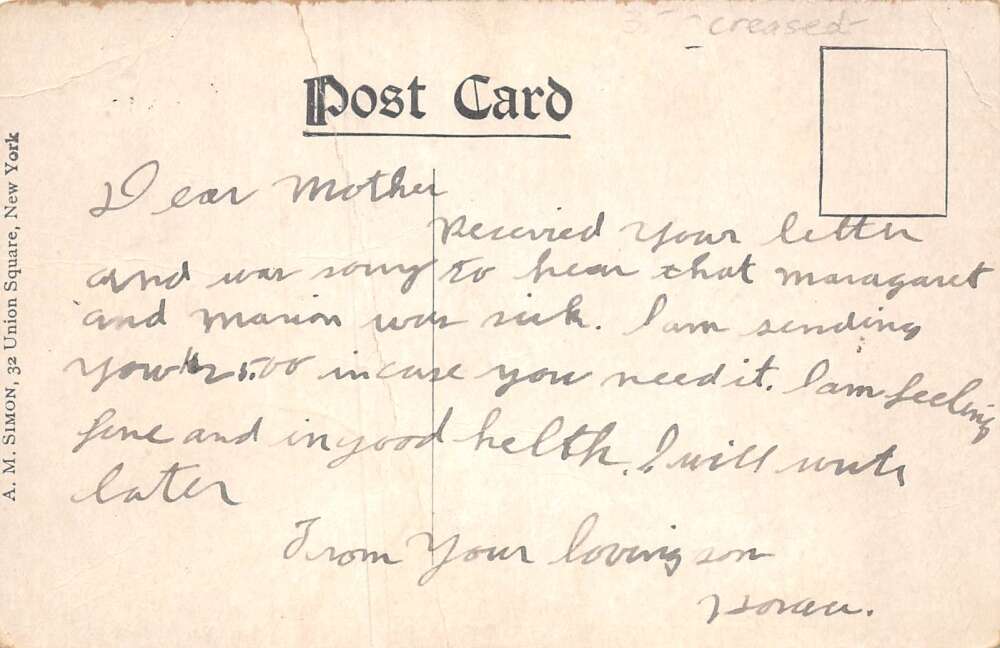 creased
Post Card
A. M. SIMON, 32 Union Square, New York
Dear Mother
Recevied your letter
and was sorry to hear that Maragaret
and Marion was sick. I am sending
you $25.00 in case you need it. I am feeling
fine and in good helth. I will write
later
From Your loving son